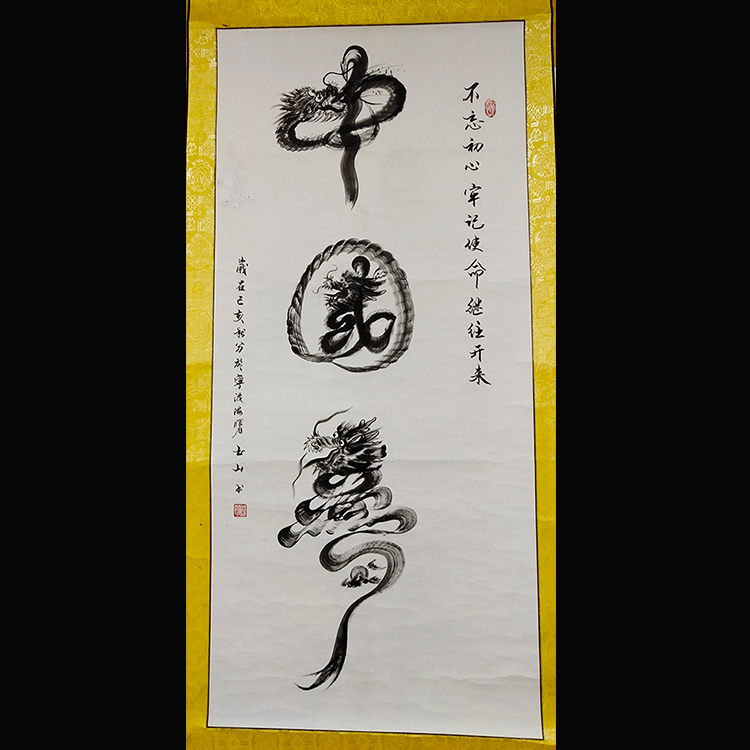 不忘初心牢记使命继往开来
中国梦
歲在己亥秋分於寧波海曙玉山书